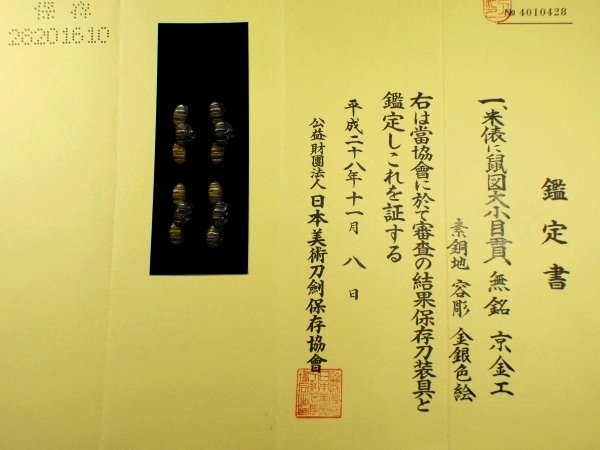 № 4010428
鑑定書
一、米俵に鼠図大小目貫 無銘 京金工
素銅地 容彫 金銀色絵
右は當協會に於て審査の結果保存刀装具と
鑑定しこれを証する
平成二十八年十一月 八 日
公益財團法人 日本美術刀劍保存協會
保存
28201610